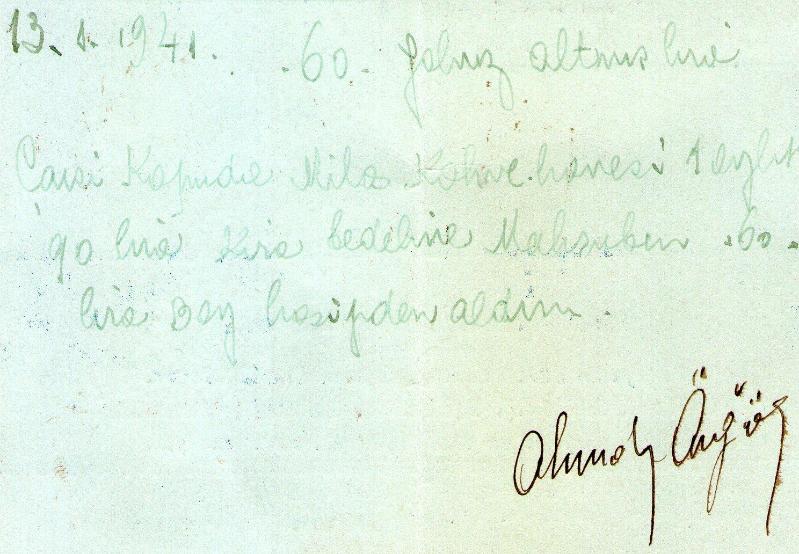 13. 1. 1941. .60. Yalnız altmış lira
Çarşi Kapuda Mila Kahve hanesi 1 aylık
90 lira kira bedeline Mahsuben .60.
lira Bay hasipden aldım.
Ahmed